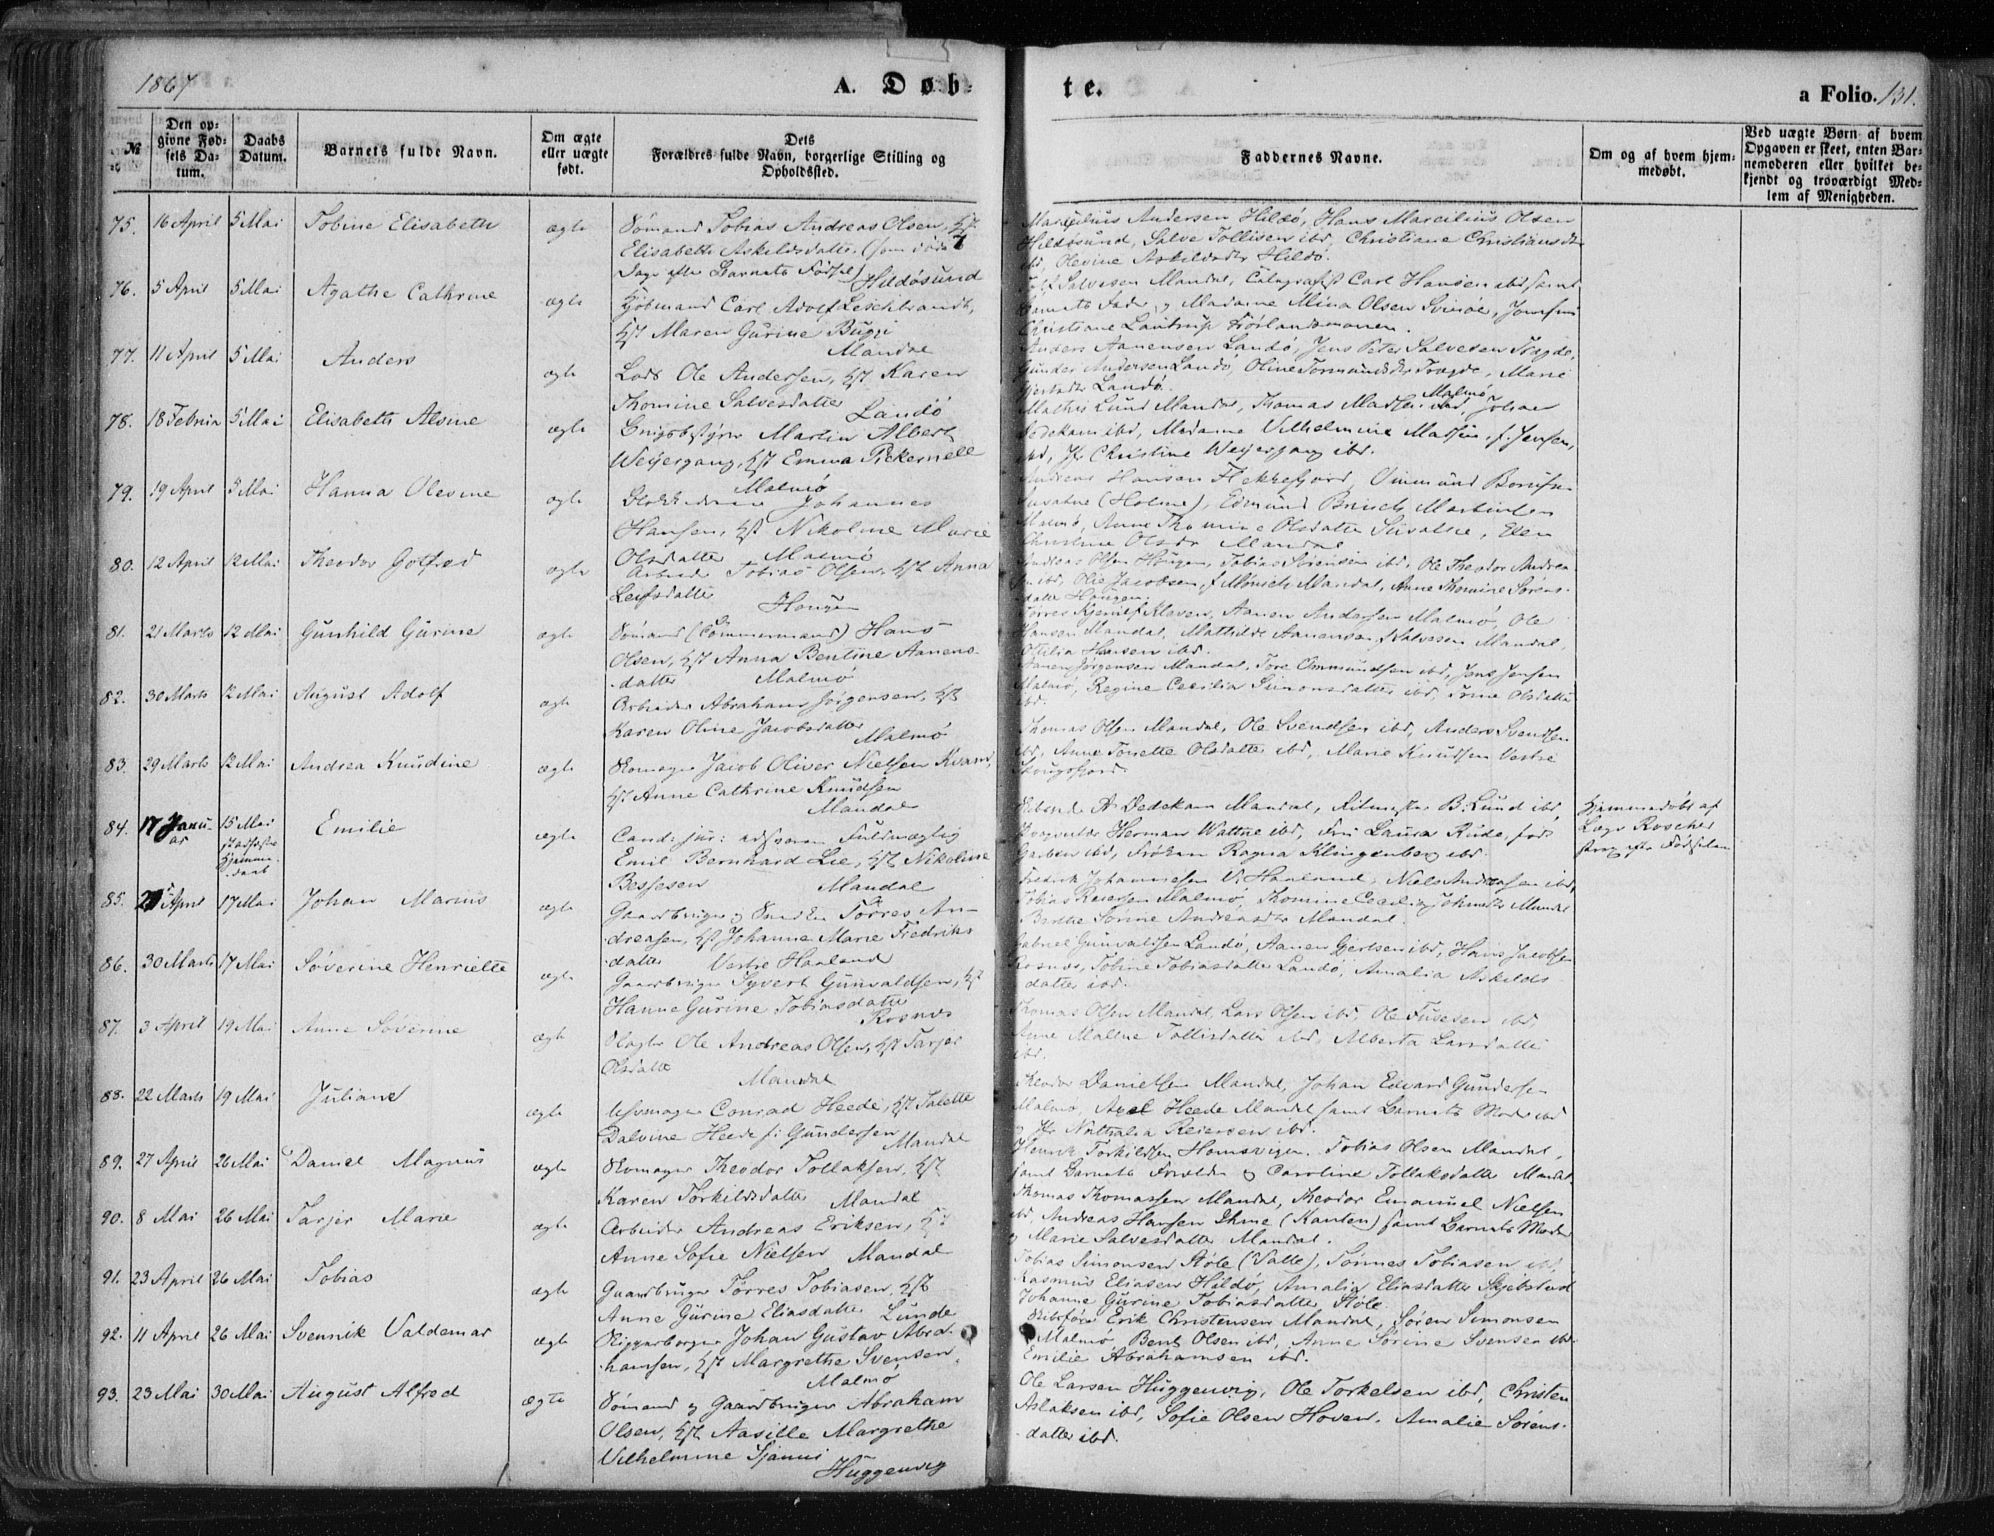 1867
A. Døb-
te.
a Folio. 131.
№
Den op-
givne Fød-
sels Da-
tum.
Daabs
Datum.
Barnets fulde Navn.
Om ægte
eller uægte
født.
Dets
Forældres fulde Navn, borgerlige Stilling og
Opholdssted.
Faddernes Navne.
Om og af hvem hjem-
medøbt.
Ved uægte Børn af hvem
Opgaven er skeet, enten Bar-
nemoderen eller hvilket be-
kjendt og troværdigt Med-
lem af Menigheden.
75. 16 April 5 Mai Tobine Elisabeth ægte Sømand Tobias Andreas Olsen, Hst
Elisabeth Askildsdatter. (som døde 7
Dage efter Barnets Fødsel) Hildøsund
Andersen Hildø, Hans Marcilius Olsen
Hildøsund, Salve Tollisen ibd, Christiane Christiansdt
ibd, Olevine Askildsdtr Hildø.
76. 5 April 5 Mai Agathe Cathrine ægte Kjøbmand Carl Adolf
Hst Maren Gurine Bugge
Mandal
Salvesen Mandal, Carl Hansen ibd samt
Barnets Fader og Madame Mina Olsen Svinøer, Jomfru
Christiane Lautrup
77. 11 April 5 Mai Anders ægte Lods Ole Andersen, Hst Karen
Thomine Salvesdatter Landø
Anders Aanensen Landø, Jens Peter Salvesen Tregde,
Gunder Andersen Landø, Oline Tormundsdtr Tregde, Marie
Landø.
78. 18 Februar 5 Mai Elisabeth Alvine ægte Martin Albert
Weyergang, Hst Emma Pickernell
Malmø
Mathis Lund Mandal, Thomas Madsen Malmø, Johan
Dedekam ibd, Madame Vilhelmine Madsen, f. Jensen,
ibd, Jfr Christine Weyergang ibd.
79. 19 April 5 Mai Hanna Olevine ægte Johannes
Hansen, Hst Nikoline Marie
Olsdatter Malmø
Andreas Hansen Flekkefjord,
(Holme), Edmund Martinsen
Malmø, Anne Thomine Olsdatter
Christine Olsdtr Mandal
80. 12 April 12 Mai Theodor Gotfred ægte Arbeider Tobias Olsen, Hst Anna
Leifsdatter Hougen
Andreas Olsen Hougen, Tobias Sørensen ibd, Ole Theodor Andrea
ibd, Olie Jacobsen, f. Mandal, Anne Thomine Sørens-
datter Hougen.
81. 21 Marts 12 Mai Gunhild Gurine ægte Sømand (Tømmermand) Hans
Olsen, Hst Anna Bentine Aanens-
datter Malmø
Kleven, Aanen Andersen Malmø, Ole
Hansen Mandal, Mathilde Aanensen f Salvesen Mandal,
Otilia Hansen ibd.
82. 30 Marts 12 Mai August Adolf ægte Arbeider Abraham Jørgensen, Hst
Karen Oline Jacobsdatter Malmø
Aanen Jørgensen Mandal, Tore Ommundsen ibd, Jens Jensen
Malmø, Regine Cecilia Simonsdatter ibd, Trine Olsdatter
ibd.
83. 29 Marts 12 Mai Andrea Knudine ægte Skomager Jacob Oliver Nielsen Kvand,
Hst Anne Cathrine Knudsen
Mandal
Thomas Olsen Mandal, Ole Svendsen ibd, Anders Svendsen
ibd, Anne Tonette Olsdatter ibd, Marie Knudsen Vestre
Skougsfjord.
84. 17 Janu-
ar 15 Mai
Stadfæstet
Hjemme-
daab Emilie ægte Cand: jur: Fuldmægtig
Emil Bernhard Lie, Hst Nikoline
Bessesen Mandal
Dedekam Mandal, B. Lund ibd,
Herman Wattne ibd, Fru Laura Rude, født
ibd, Frøken Ragna Klingenberg ibd.
Hjemmedøbt af
Læge Roscher
strax efter Fødselen
85. April 17 Mai Johan Marius ægte Gaardbruger og Tørres An-
dreasen, Hst Johanne Marie Fredriks
datter Vestre Haaland
Fredrik Johannesen V. Haaland, Niels Andreasen ibd,
Tobias Reiersen Malmø, Thomine Cecilia Mandal
Berthe Sorine Andreasdtr Mandal.
86. 30 Marts 17 Mai Søverine Henriette ægte Gaardbruger Syvert Gunvaldsen, Hst
Hanne Gurine Tobiasdatter
Rosnes
Gabriel Gunvaldsen Landø, Aanen Gjertsen ibd, Hans Jacobsen
Rosnes, Tobine Tobiasdatter Landø, Amalia Askilds
datter ibd.
87. 3 April 19 Mai Anne Søverine ægte Ole Andreas Olsen, Hst Tarjer
Olsdatter Mandal
Thomas Olsen Mandal, Lars Olsen ibd, Ole ibd
Anne Malene Tollisdatter ibd, Alberta Larsdatter
ibd.
88. 22 Marts 19 Mai Juliane ægte Conrad Heede, Hst Talette
Dalvine Heede f: Gundersen Mandal
Theodor Danielsen Mandal, Johan Edvard Gundersen
Malmø, Axel Heede Mandal samt Barnets Moder ibd
og Jfr Nathalia Reiersen ibd.
89. 27 April 26 Mai Daniel Magnus ægte Skomager Theodor Tollaksen, Hst
Karen Torkildsdatter Mandal
Henrik Torkildsen Homsvigen, Tobias Olsen Mandal,
samt Barnets Forældre og Caroline Tollaksdatter Mandal
90. 8 Mai 26 Mai Tarjer Marie ægte Arbeider Andreas Eriksen, Hst
Anne Sofie Nielsen Mandal
Thomas Thomassen Mandal, Theodor Emanuel Nielsen
ibd, Andreas Hansen Ihme (Kanten) samt Barnets Moder
og Marie Salvesdatter Mandal.
91. 23 April 26 Mai Tobias ægte Gaardbruger Tørres Tobiasen, Hst
Anne Gurine Eliasdatter Lunde
Tobias Simonsen Støle (Valle), Tønnes Tobiasen ibd,
Rasmus Eliasen Hildø, Amalia Eliasdatter Skjebstad
Johanne Gurine Tobiasdatter Støle.
92. 11 April 26 Mai Svennik Valdemar ægte Johan Gustav Abra-
hamsen, Hst Margrethe Svensen,
Malmø
Skibsfører Erik Christensen Mandal, Søren Simonsen
Malmø, Bent Olsen ibd, Anne Sørine Svensen ibd
Emilie Abrahamsen ibd.
93. 23 Mai 30 Mai August Alfred ægte Sømand og Gaardbruger Abraham
Olsen, Hst Aasille Margrethe
Vilhelmine
Huggenvig
Ole Larsen Huggenvig, Ole Torkelsen ibd, Christen
Aslaksen ibd, Sofie Olsen Hoven, Amalie Sørens-
datter ibd.